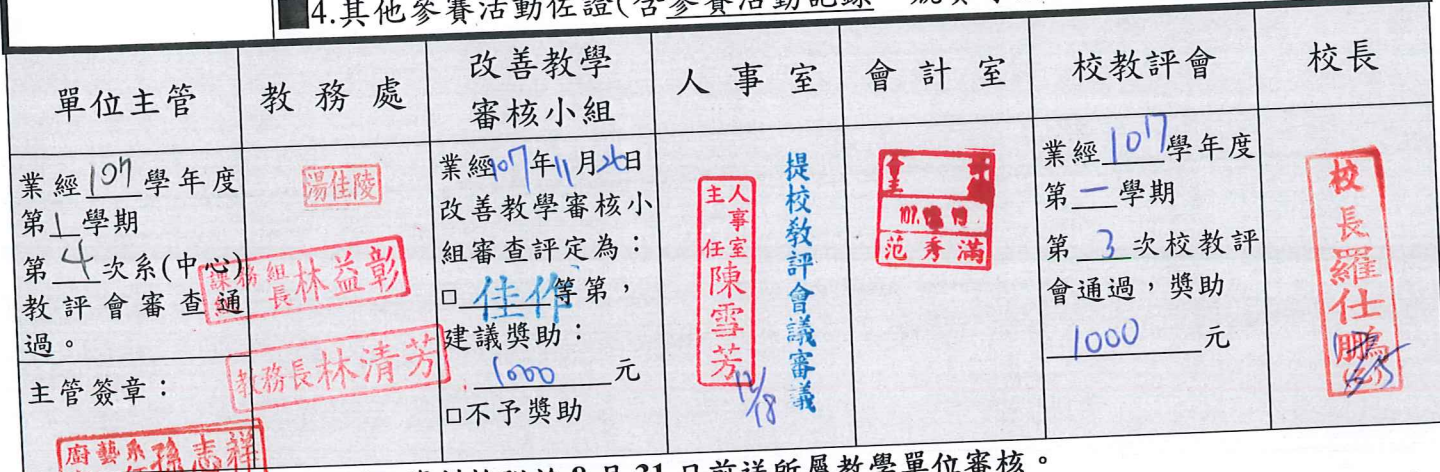 4.其他參賽活動佐證(含參賽活動記錄
單位主管
教務處
改善教學
審核小組
人事室
會計室
校教評會
校長
業經107學年度
第1學期
第4次系(中心)
教評會審查通
過。
主管簽章：
廚藝系
孫志祥
湯佳陵
課務組
長林益彰
教務長林清芳
業經107年11月26日
改善教學審核小
組審查評定為：
□佳作等第，
建議獎助：
1000元
□不予獎助
人事室
主任陳雪芳
12/18
提校教評會議審議
107.
范秀滿
業經107學年度
第一學期
第3次校教評
會通過，獎助
1000元
校長羅仕鵬
8月31日前送所屬教學單位審核。